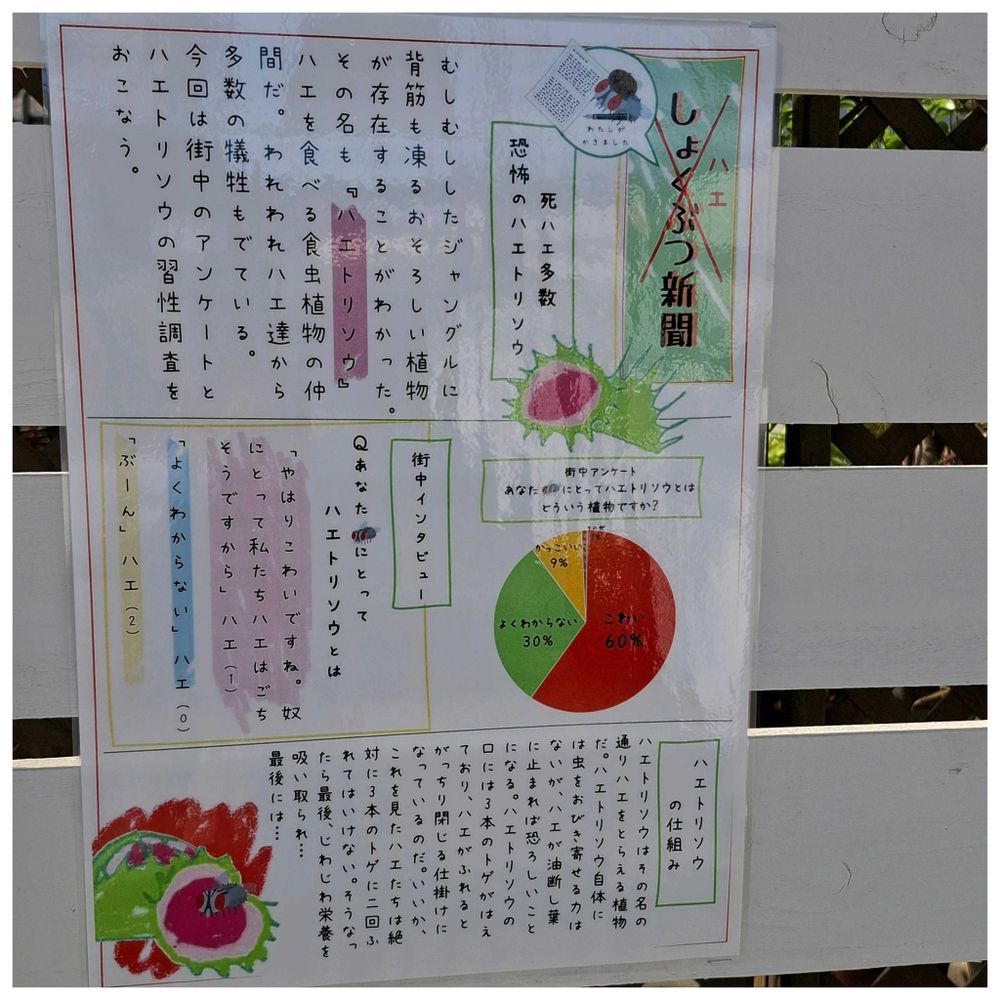 ハエ
しょくぶつ新聞
わたしが
かきました
死ハエ多数
恐怖のハエトリソウ
むしむしむししたジャングルに
背筋も凍るおそろしい植物
が存在することがわかった。
その名も『ハエトリソウ』
ハエを食べる食虫植物の仲
間だ。われわれハエ達から
多数の犠牲もでている。
今回は街中のアンケートと
ハエトリソウの習性調査を
おこなう。
街中アンケート
あなたにとってハエトリソウとは
どういう植物ですか?
こわい
60%
よくわからない
30%
かっこいい
9%
街中インタビュー
Qあなたにとって
ハエトリソウとは
「やはりこわいですね。奴
にとって私たちハエはごち
そうですから」ハエ(1)
「よくわからない」ハエ(0)
「ぶーん」ハエ(2)
ハエトリソウ
の仕組み
ハエトリソウはその名の
通りハエをとらえる植物
だ。ハエトリソウ自体に
は虫をおびき寄せる力は
ないが、ハエが油断し葉
に止まれば恐ろしいこと
になる。ハエトリソウの
口には3本のトゲがはえ
ており、ハエがふれると
がっちり閉じる仕掛けに
なっているのだ。いいか、
これを見たハエたちは絶
対に3本のトゲに二回ふ
れてはいけない。そうなっ
たら最後、じわじわ栄養を
吸い取られ…
最後には…